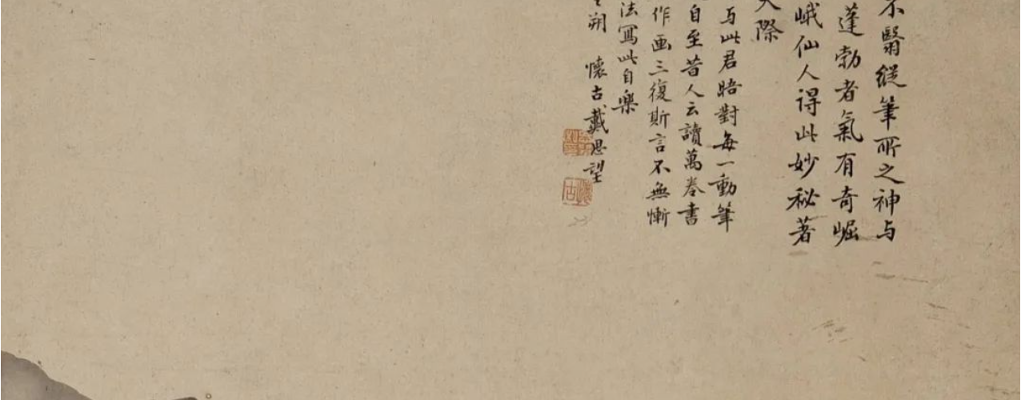 不醫縱筆所之神与
蓬勃者氣有奇崛
峨仙人得此妙秘著
天際
与此君晤對每一動筆
自至昔人云讀萬卷書
作画三復斯言不無慚
法寫此自樂
朔 懷古戴思望